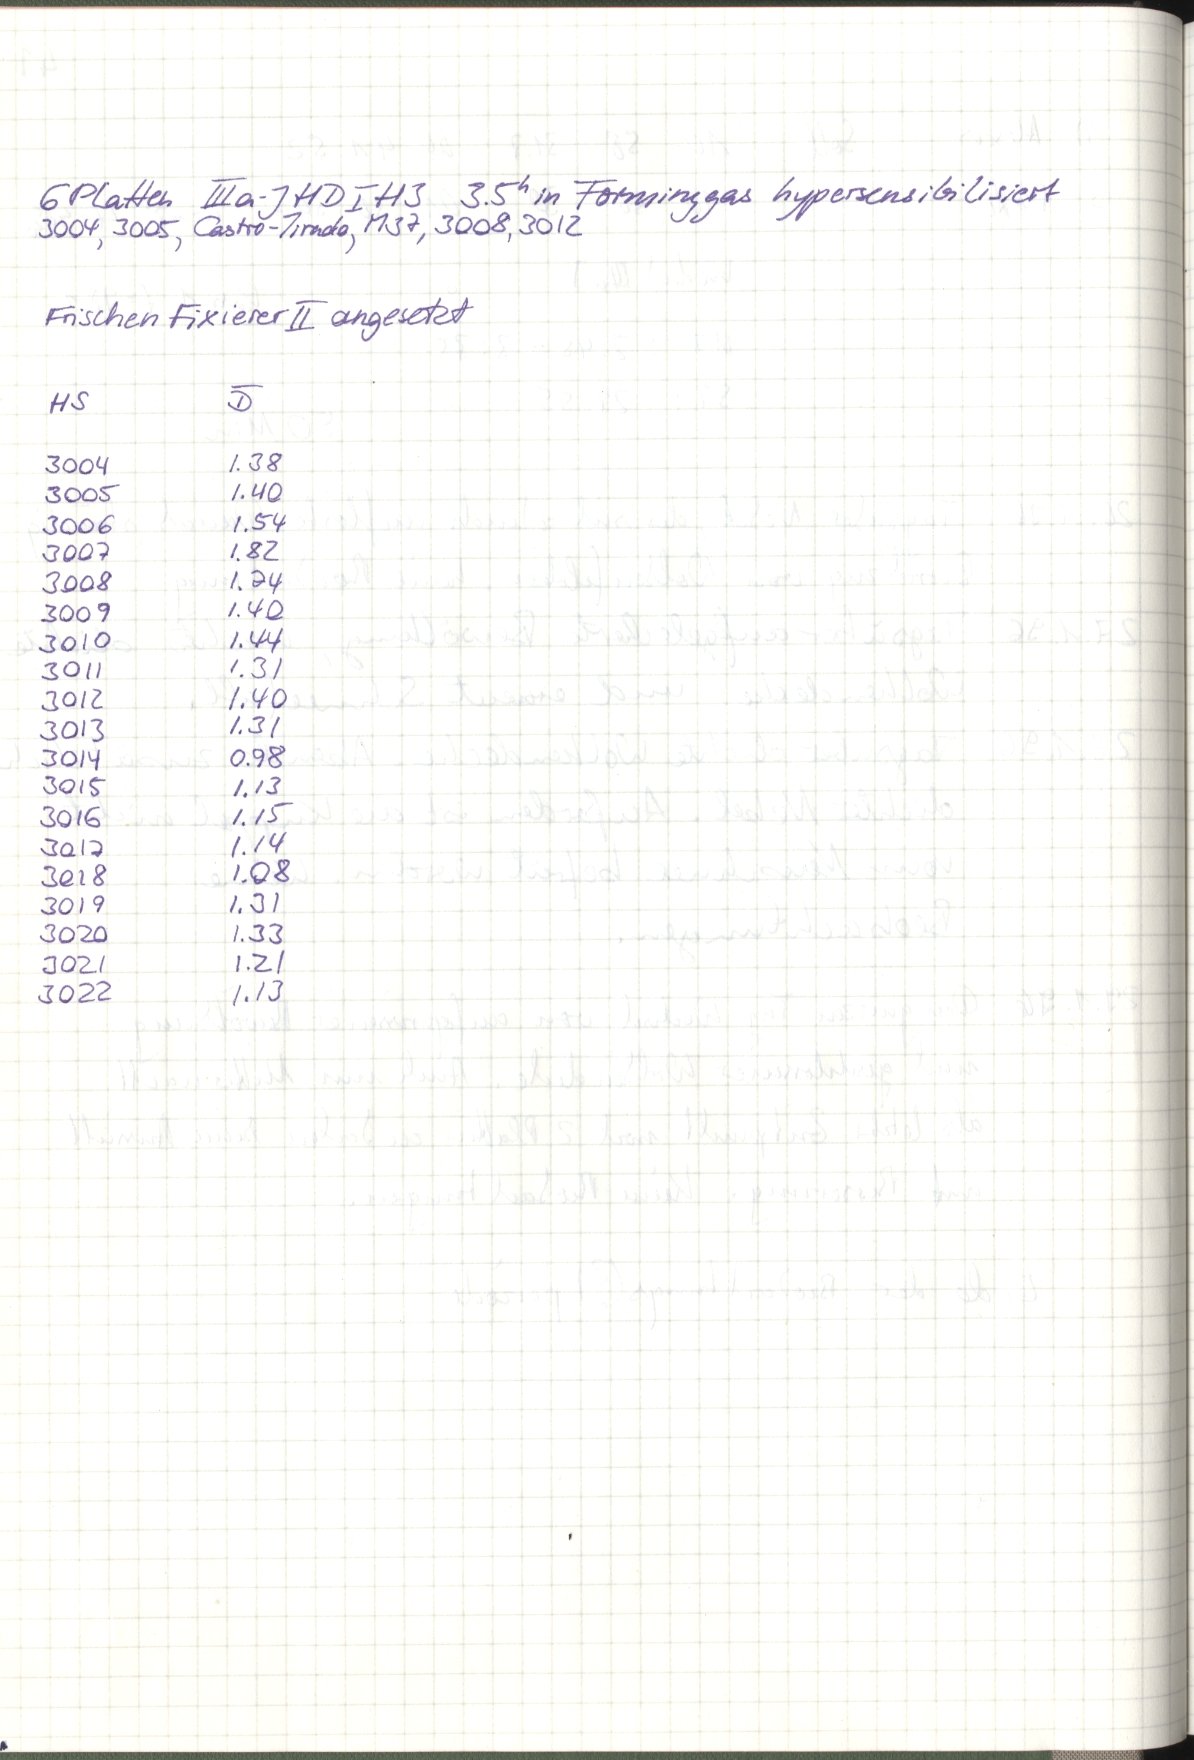 6 Platten IIIa-J HD I H3 3.5h in Forminggas hypersensibilisiert
3004, 3005, Castro-Tirado, M37, 3008, 3012
Frischen Fixierer II angesetzt
HS D̅
3004 1.38
3005 1.40
3006 1.54
3007 1.82
3008 1.24
3009 1.40
3010 1.44
3011 1.31
3012 1.40
3013 1.31
3014 0.98
3015 1.13
3016 1.15
3017 1.14
3018 1.08
3019 1.31
3020 1.33
3021 1.21
3022 1.13